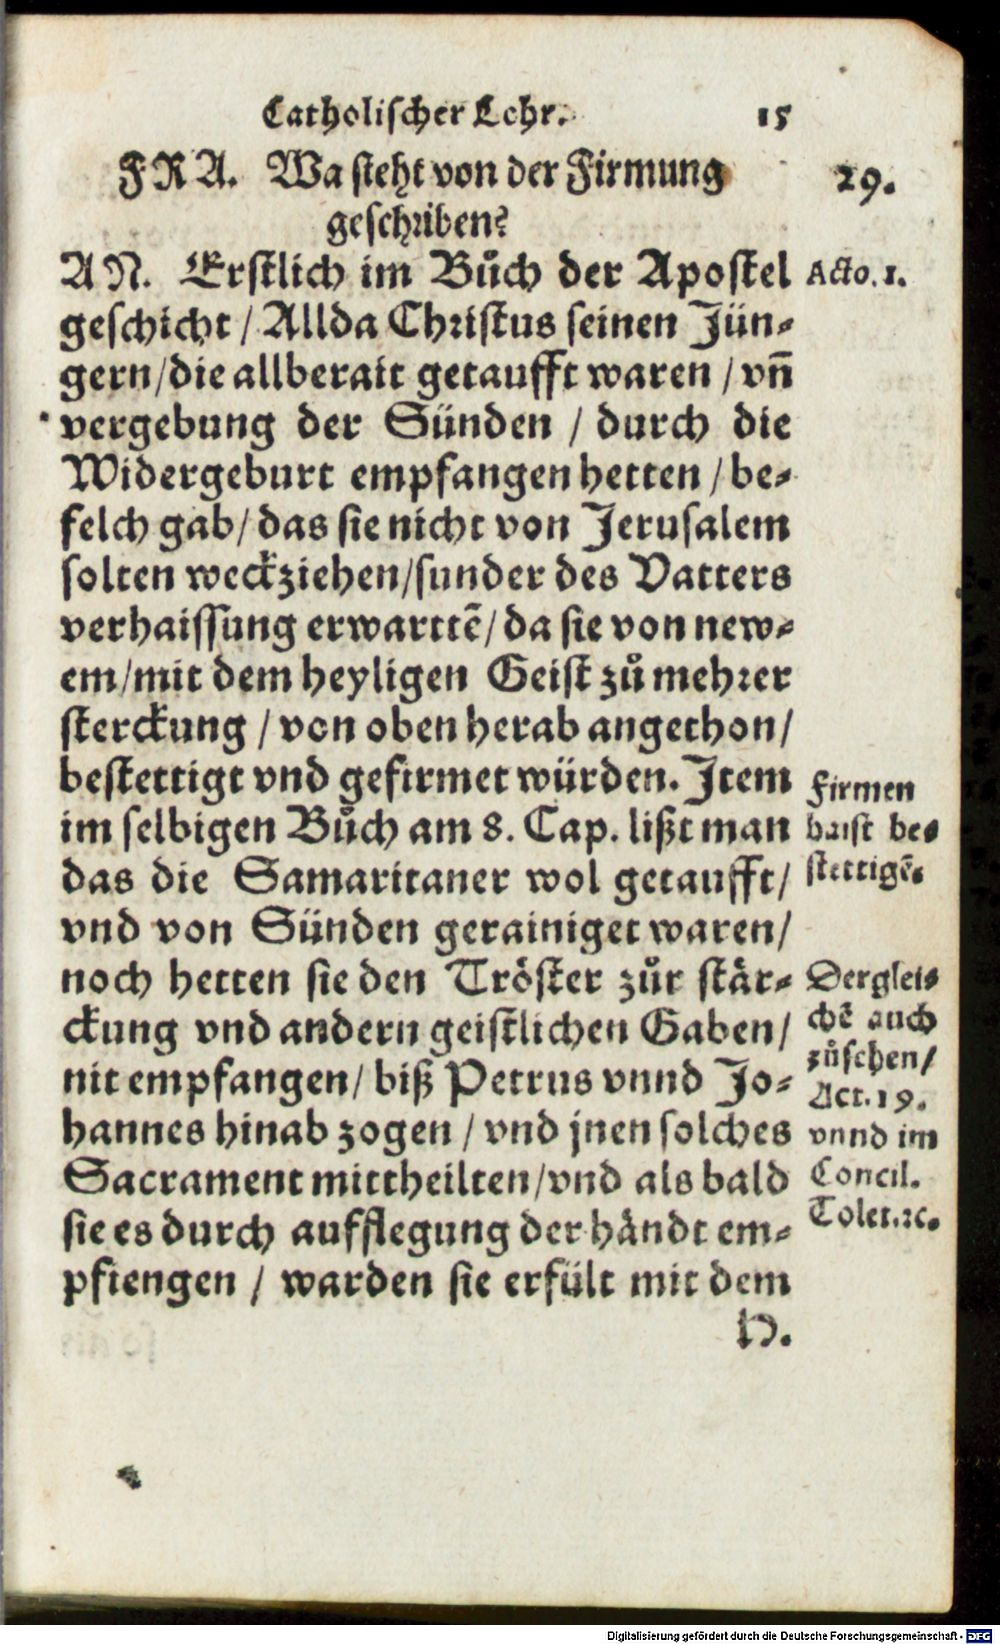 Catholischer Lehr. 15
FRA. Wa steht von der Firmung 29.
geschriben?
AN. Erstlich im Bůch der Apostel Acto. 1.
geschicht / Allda Christus seinen Jün-
gern/die allberait getaufft waren / vn̄
vergebung der Sünden / durch die
Widergeburt empfangen hetten / be-
felch gab/ das sie nicht von Jerusalem
solten weckziehen/sunder des Vatters
verhaissung erwarttẽ/ da sie von new-
em/mit dem heyligen Geist zů mehrer
sterckung / von oben herab angethon/
bestettigt vnd gefirmet würden. Item
im selbigen Bůch am 8. Cap. lißt man
das die Samaritaner wol getaufft/
vnd von Sünden gerainiget waren/
noch hetten sie den Tröster zůr stär-
ckung vnd andern geistlichen Gaben/
nit empfangen/ biß Petrus vnnd Jo-
hannes hinab zogen / vnd jnen solches
Sacrament mittheilten/vnd als bald
sie es durch aufflegung der händt em-
pfiengen / warden sie erfült mit dem
H.
Firmen
haist be-
stettigẽ.
Derglei-
chẽ auch
zůsehen/
Act. 19.
vnnd im
Concil.
Tolet. ꝛc.
Digitalisierung gefördert durch die Deutsche Forschungsgemeinschaft - DFG